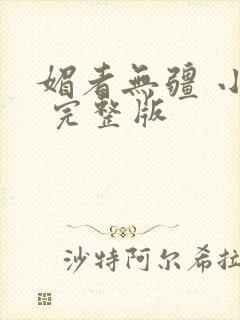 媚者無疆 小
完整版
沙特阿尔希拉